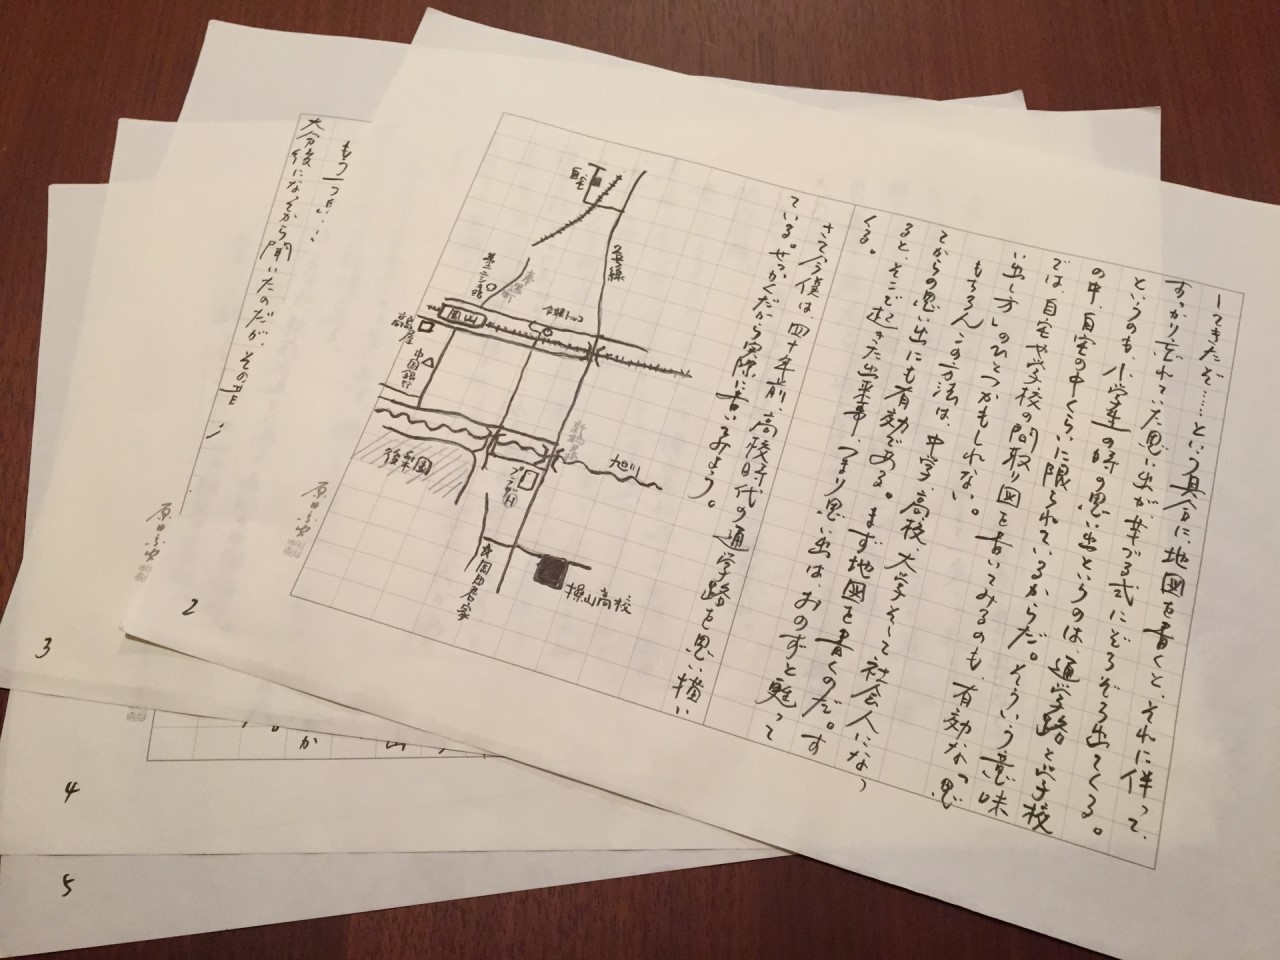 してきたぞ……という具合に、地図を書くと、それに伴って、
すっかり忘れていた思い出が、芋づる式にぞろぞろ出てくる。
というのも、小学生の時の思い出というのは、通学路と学校
の中、自宅の中くらいに限られているからだ。そういう意味
では、自宅や学校の間取り図を書いてみるのも、有効な「思
い出し方」のひとつかもしれない。
もちろんこの方法は、中学、高校、大学そして社会人になっ
てからの思い出にも有効である。まず地図を書くのだ。す
ると、そこで起きた出来事、つまり思い出は、おのずと甦って
くる。
さて今僕は、四十年前、高校時代の通学路を思い描い
ている。せっかくだから実際に書いてみよう。
自宅
2号線
岡山
高島屋
中国銀行
後楽園
旭川
プラザH
操山高校
もう一つ思い
大分後になってから聞いたのだが、その昔
2
3
4
5
か